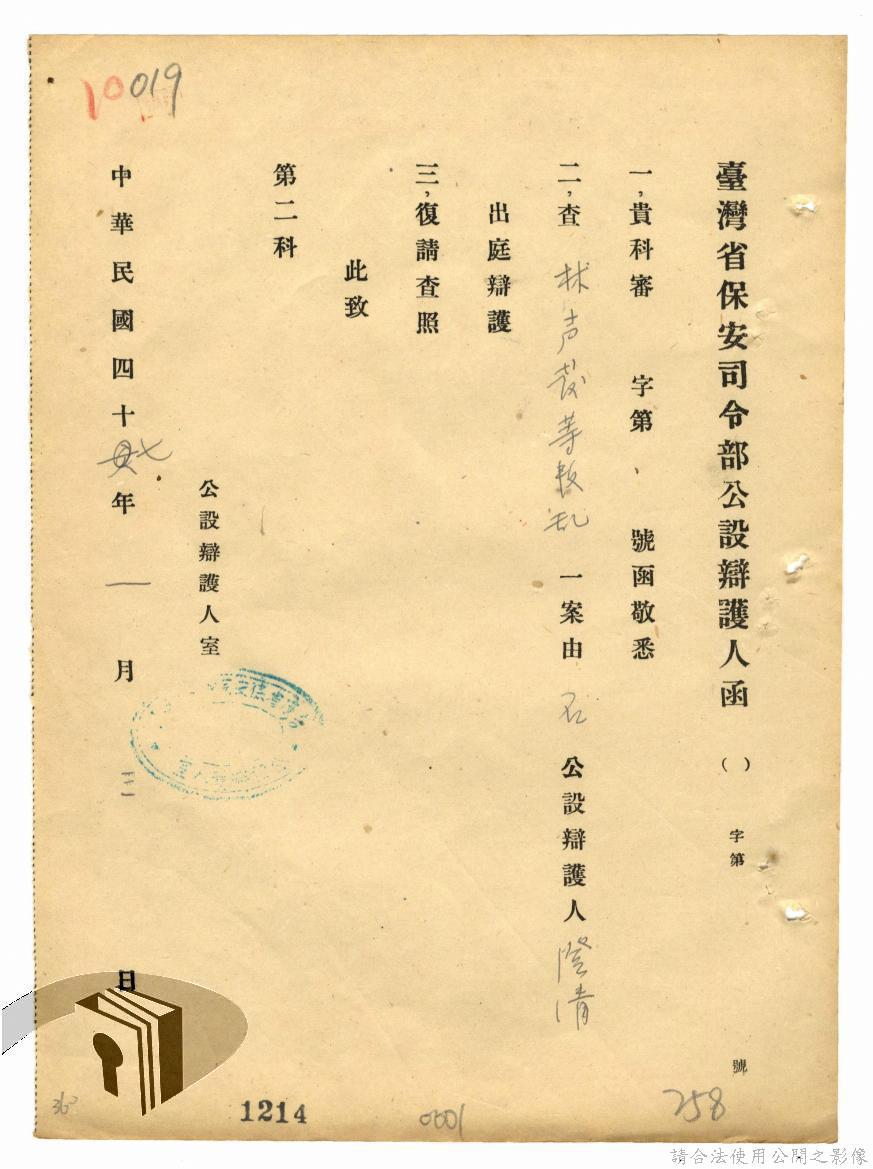 臺灣省保安司令部公設辯護人函 ( ) 字第 號
一,貴科審 字第 號函敬悉
二,查 林声發等叛乱 一案由 石 公設辯護人 隆清
出庭辯護
三,復請查照
此致
第二科
公設辯護人室
中華民國四十七年一月三日
10019
1214
0001
258
請合法使用公開之影像